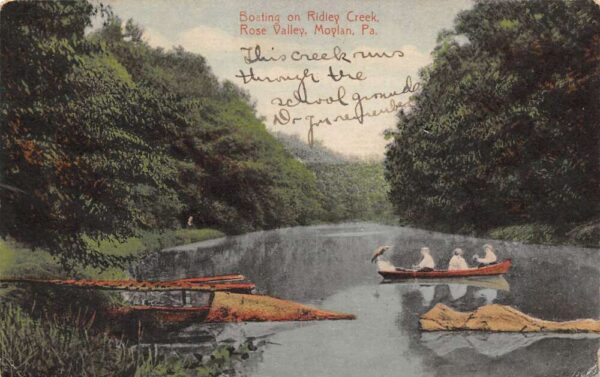 Boating on Ridley Creek,
Rose Valley, Moylan, Pa.
This creek runs
through the
school grounds
Do you remember